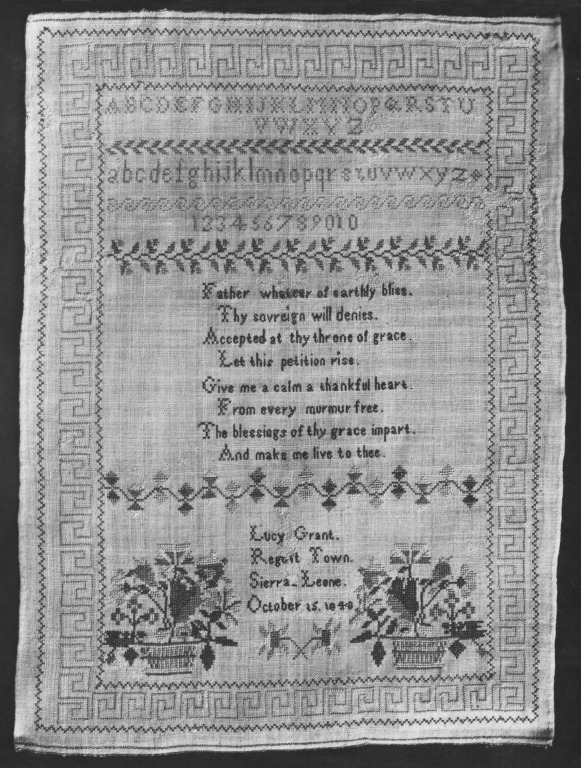 ABCDEFGHIJKLMNOPQRSTU
VWXYZ
abcdefghijklmnopqrstuvwxyz
123456789010
Father whatever of earthly bliss.
Thy sovreign will denies.
Accepted at thy throne of grace.
Let this petition rise.
Give me a calm a thankful heart.
From every murmur free.
The blessings of thy grace impart.
And make me live to thee.
Lucy Grant.
Regent Town.
Sierra Leone.
October 15. 1840.